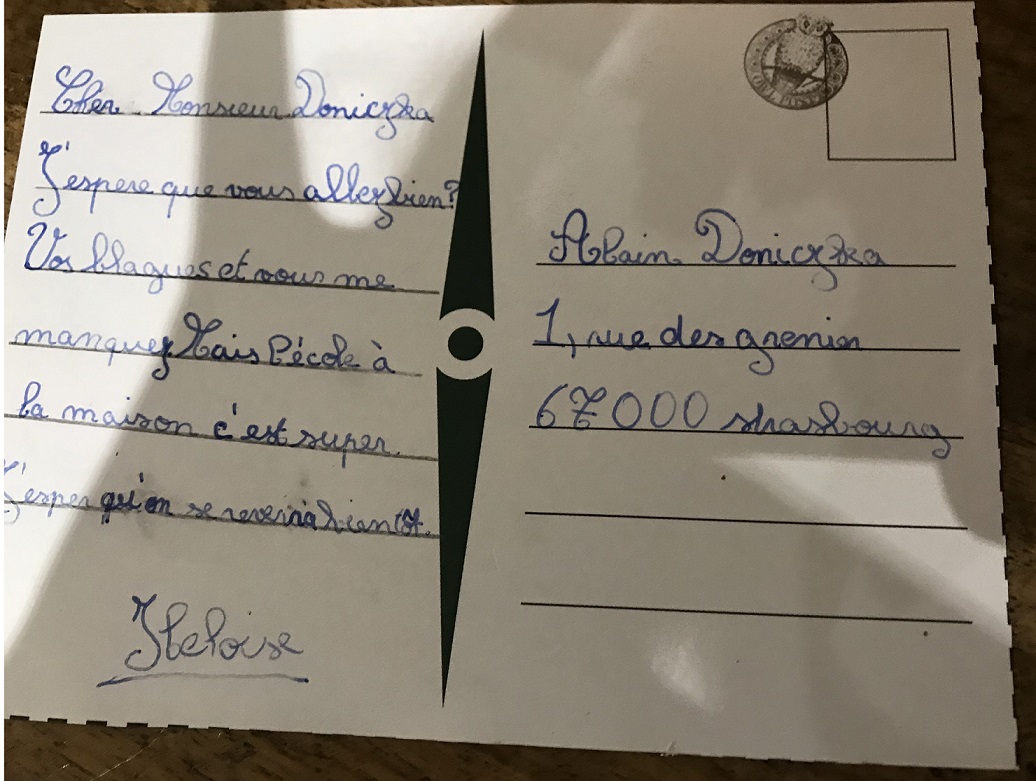 Cher Monsieur Doniczka
J'espere que vous allez bien?
Vos blagues et vous me
manquez Mais l'école à
la maison c'est super.
J'esper qu'on se reverra bientôt.
Heloïse
Alain Doniczka
1, rue des grenier
67000 strasbourg